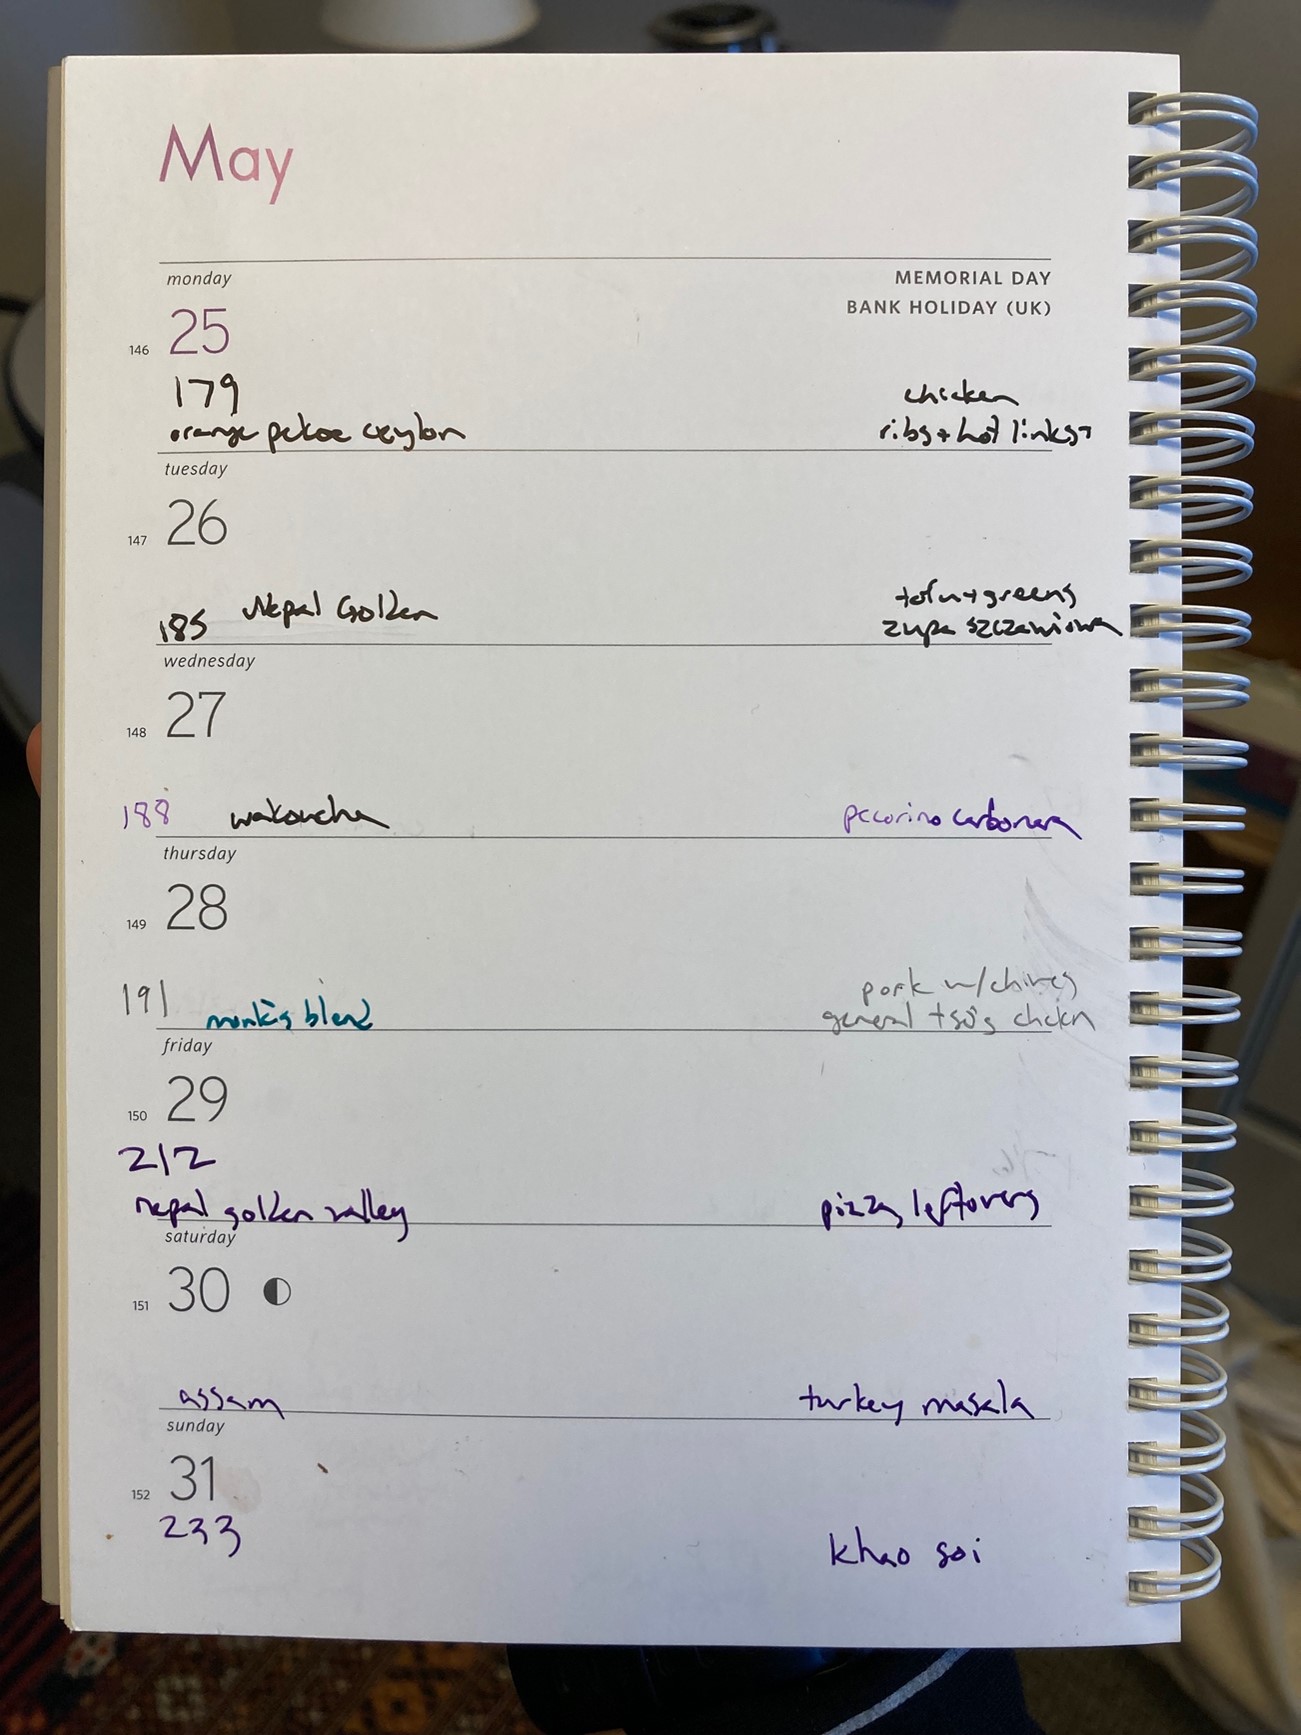 May
monday
MEMORIAL DAY
25
BANK HOLIDAY (UK)
146
179
chicken
orange pekoe ceylon
ribs + hot links
tuesday
26
147
tofu + greens
185 Nepal Golden
zupa szczawiowa
wednesday
27
148
188 wakoucha
pecorino carbonara
thursday
28
149
191
pork w/chives
monk's blend
general tso's chicken
friday
29
150
212
nepal golden valley
pizza leftovers
saturday
30
151
assam
turkey masala
sunday
31
152
233
khao soi